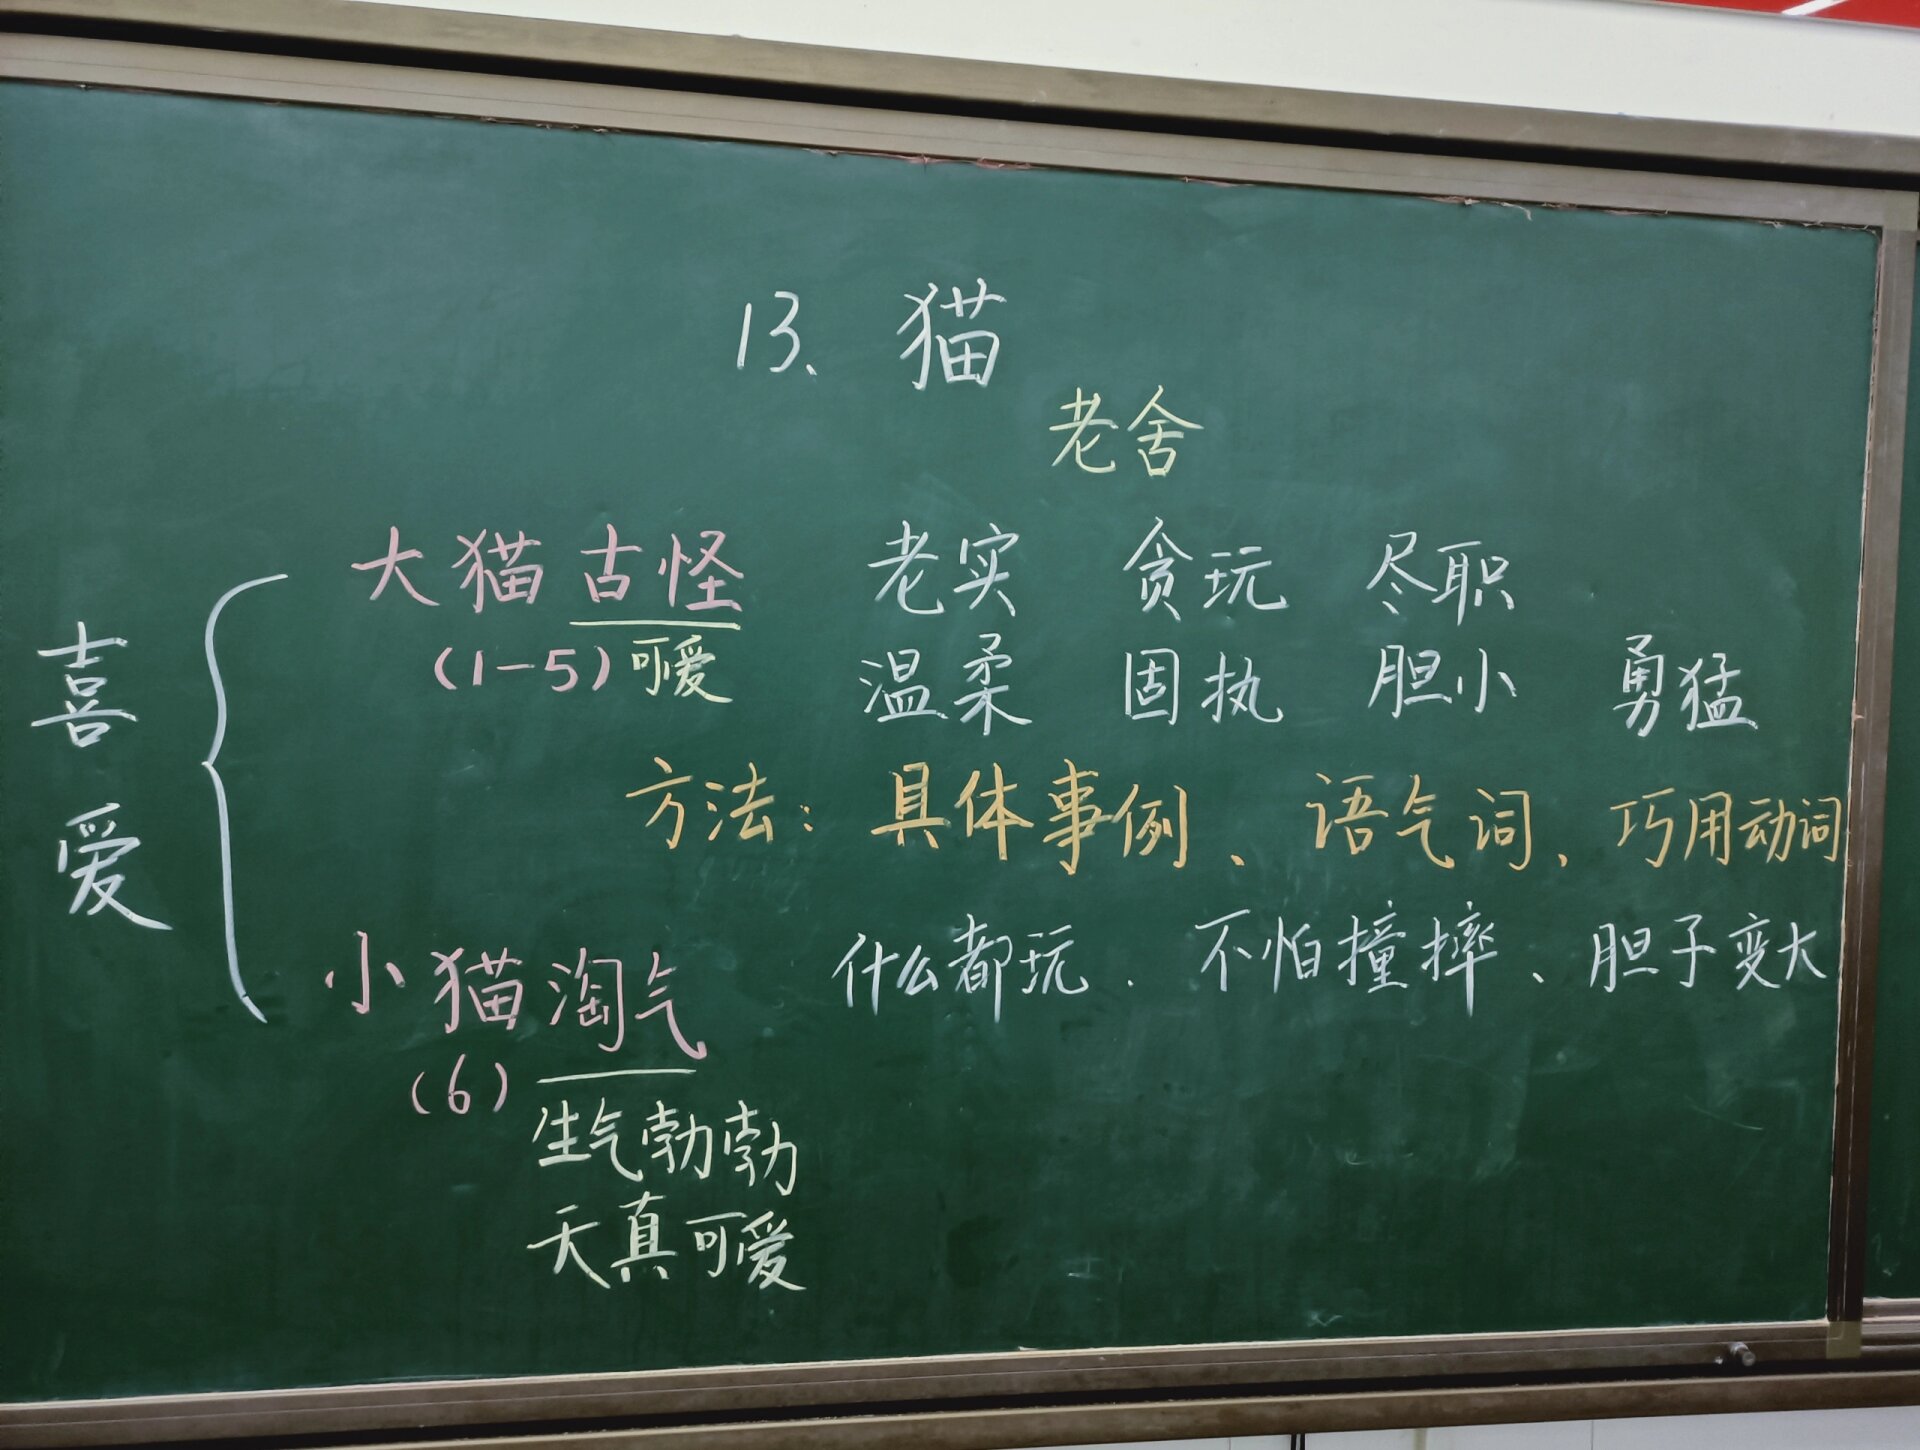 13、猫
老舍
喜爱
大猫古怪 老实 贪玩 尽职
(1-5)可爱 温柔 固执 胆小 勇猛
方法：具体事例、语气词、巧用动词
小猫淘气 什么都玩、不怕撞摔、胆子变大
(6)
生气勃勃
天真可爱